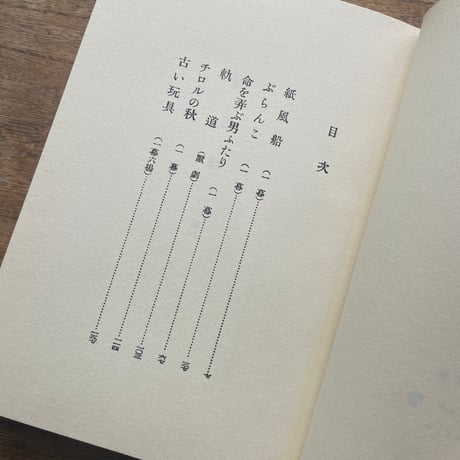 目次
紙風船(一幕)
ぶらんこ(一幕)
命を弄ぶ男ふたり(一幕)
軌道(黙劇)
チロルの秋(一幕)
古い玩具(一幕六場)